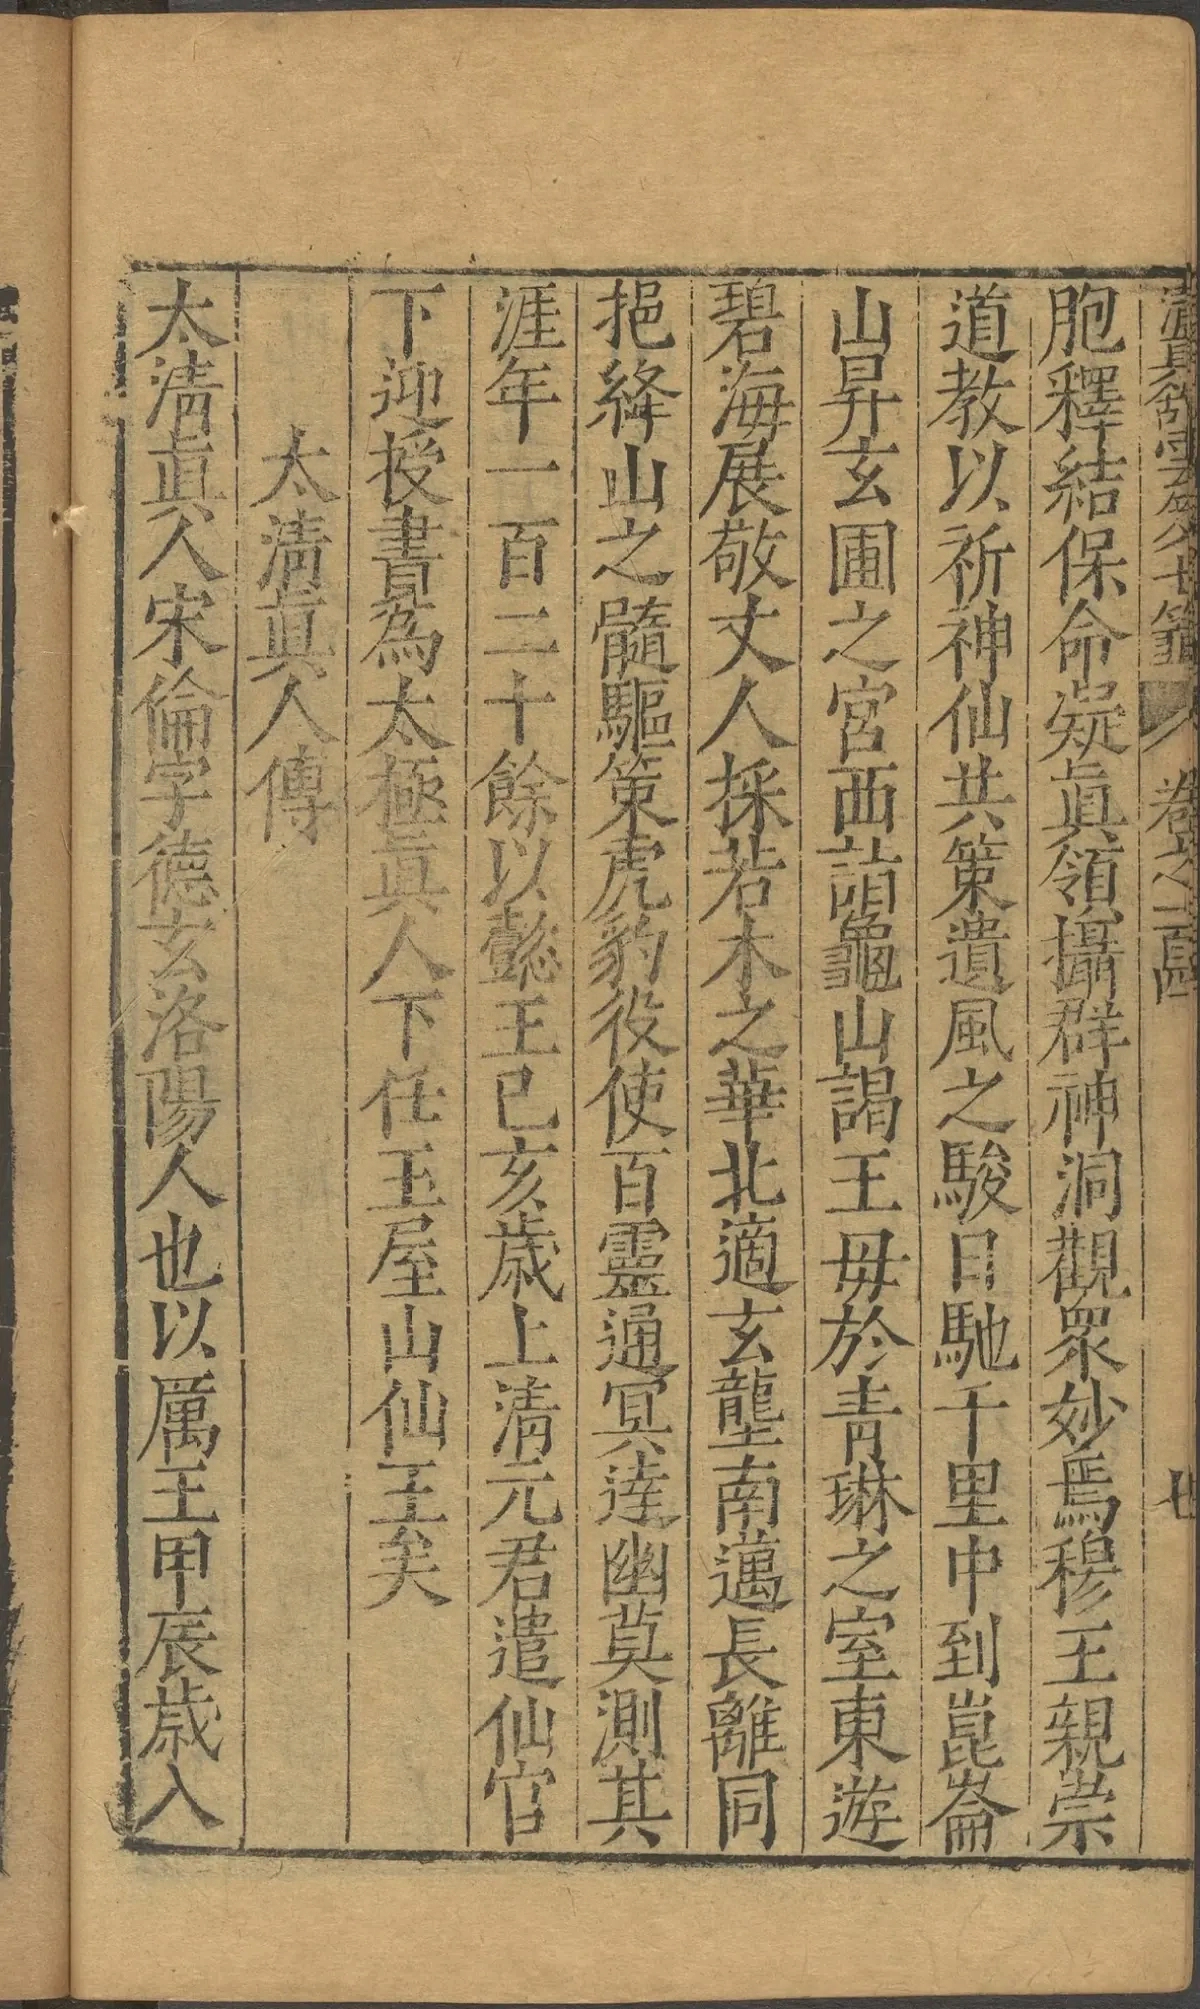 清眞館雲笈七籤 卷之一百四 廿
胞釋結保命凝眞領攝群神洞觀眾妙焉穆王親崇
道教以祈神仙共策遺風之駿日馳千里中到崑崙
山昇玄圃之宮西詣龜山謁王毋於青琳之室東遊
碧海展敬丈人採若木之華北適玄壟南邁長離同
挹絳山之髓驅策虎豹役使百靈通冥達幽莫測其
涯年一百二十餘以懿王已亥歲上清元君遣仙官
下迎授書為太極眞人下任王屋山仙王矣
太清眞人傳
太清眞人宋倫字德玄洛陽人也以厲王甲辰歲入